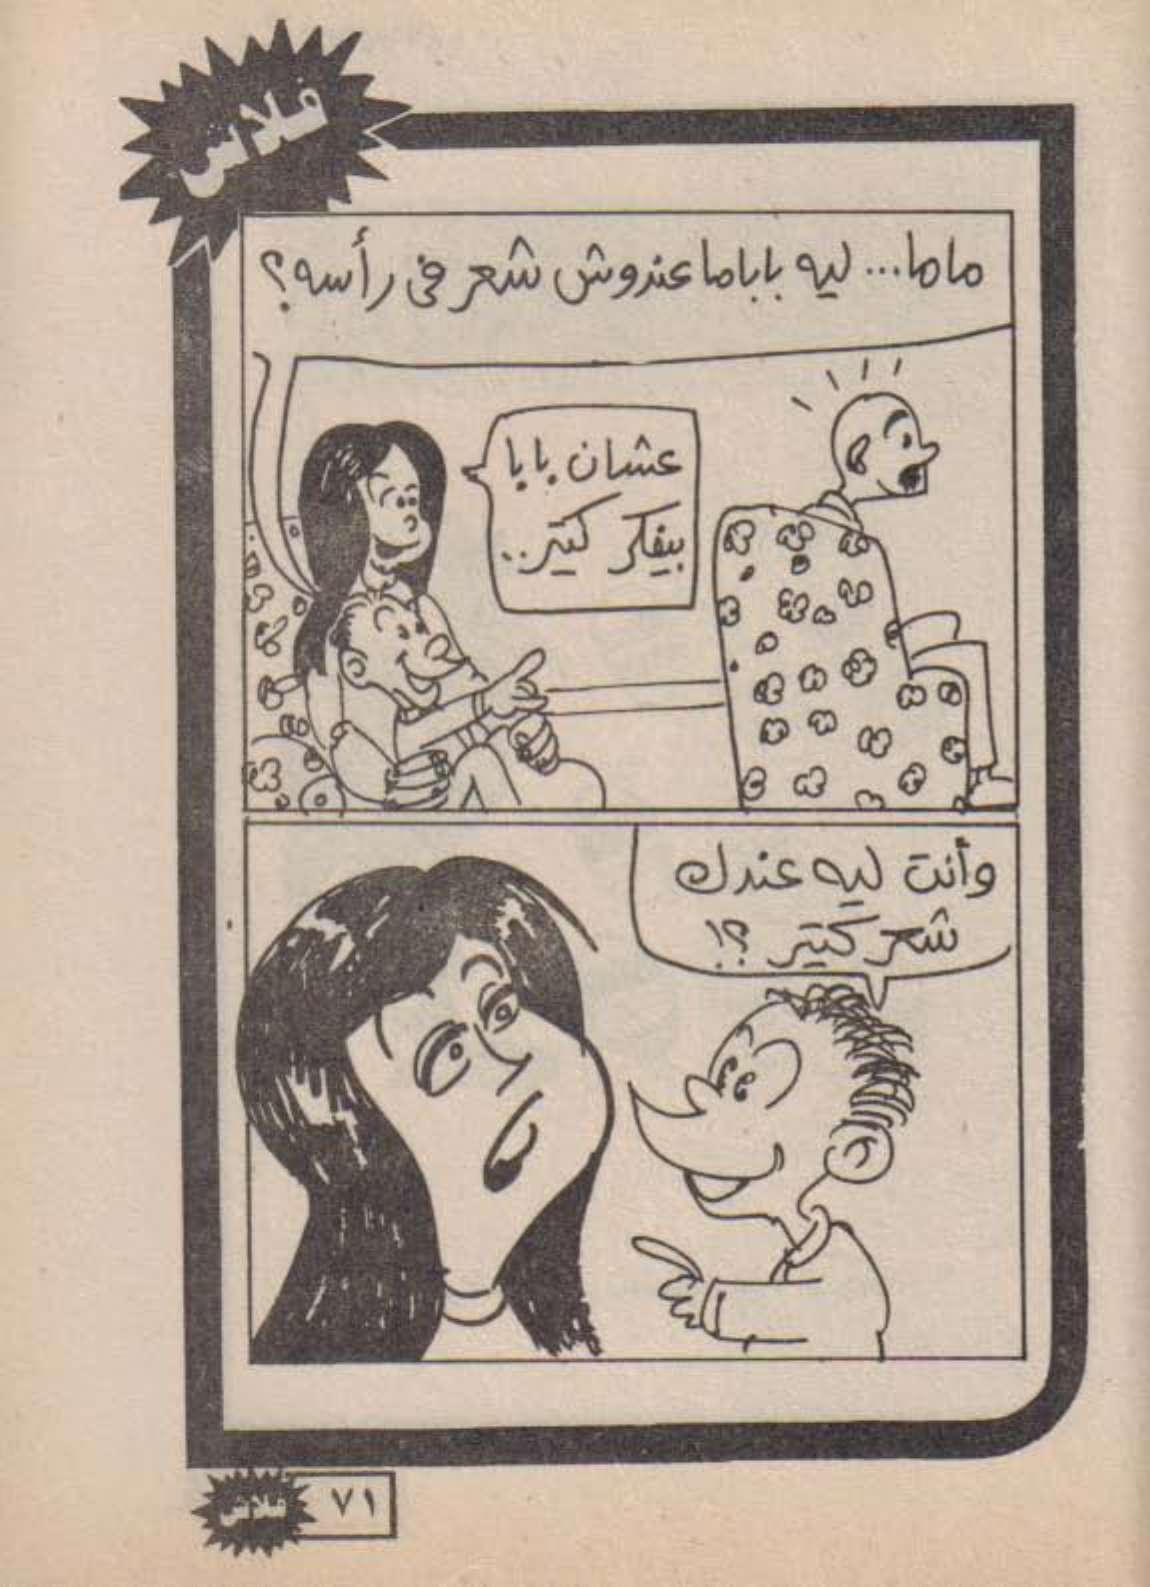 فلاش
ماما... ليه بابا ماعندوش شعر فى رأسه؟
عشان بابا
بيفكر كتير..
وأنت ليه عندك
شعر كتير ؟!
٧١
فلاش